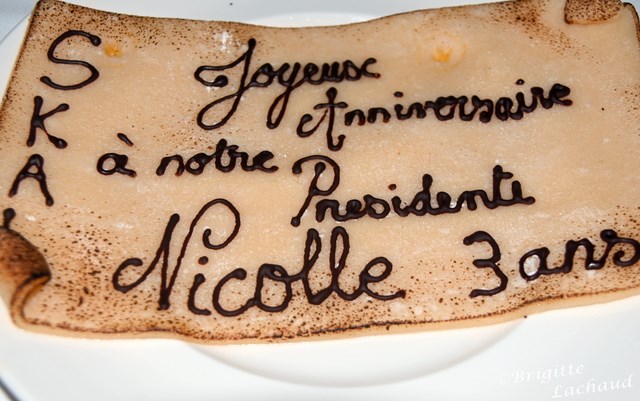 SKA
Joyeux
Anniversaire
à notre
Presidente
Nicolle 3 ans
©Brigitte
Lachaud